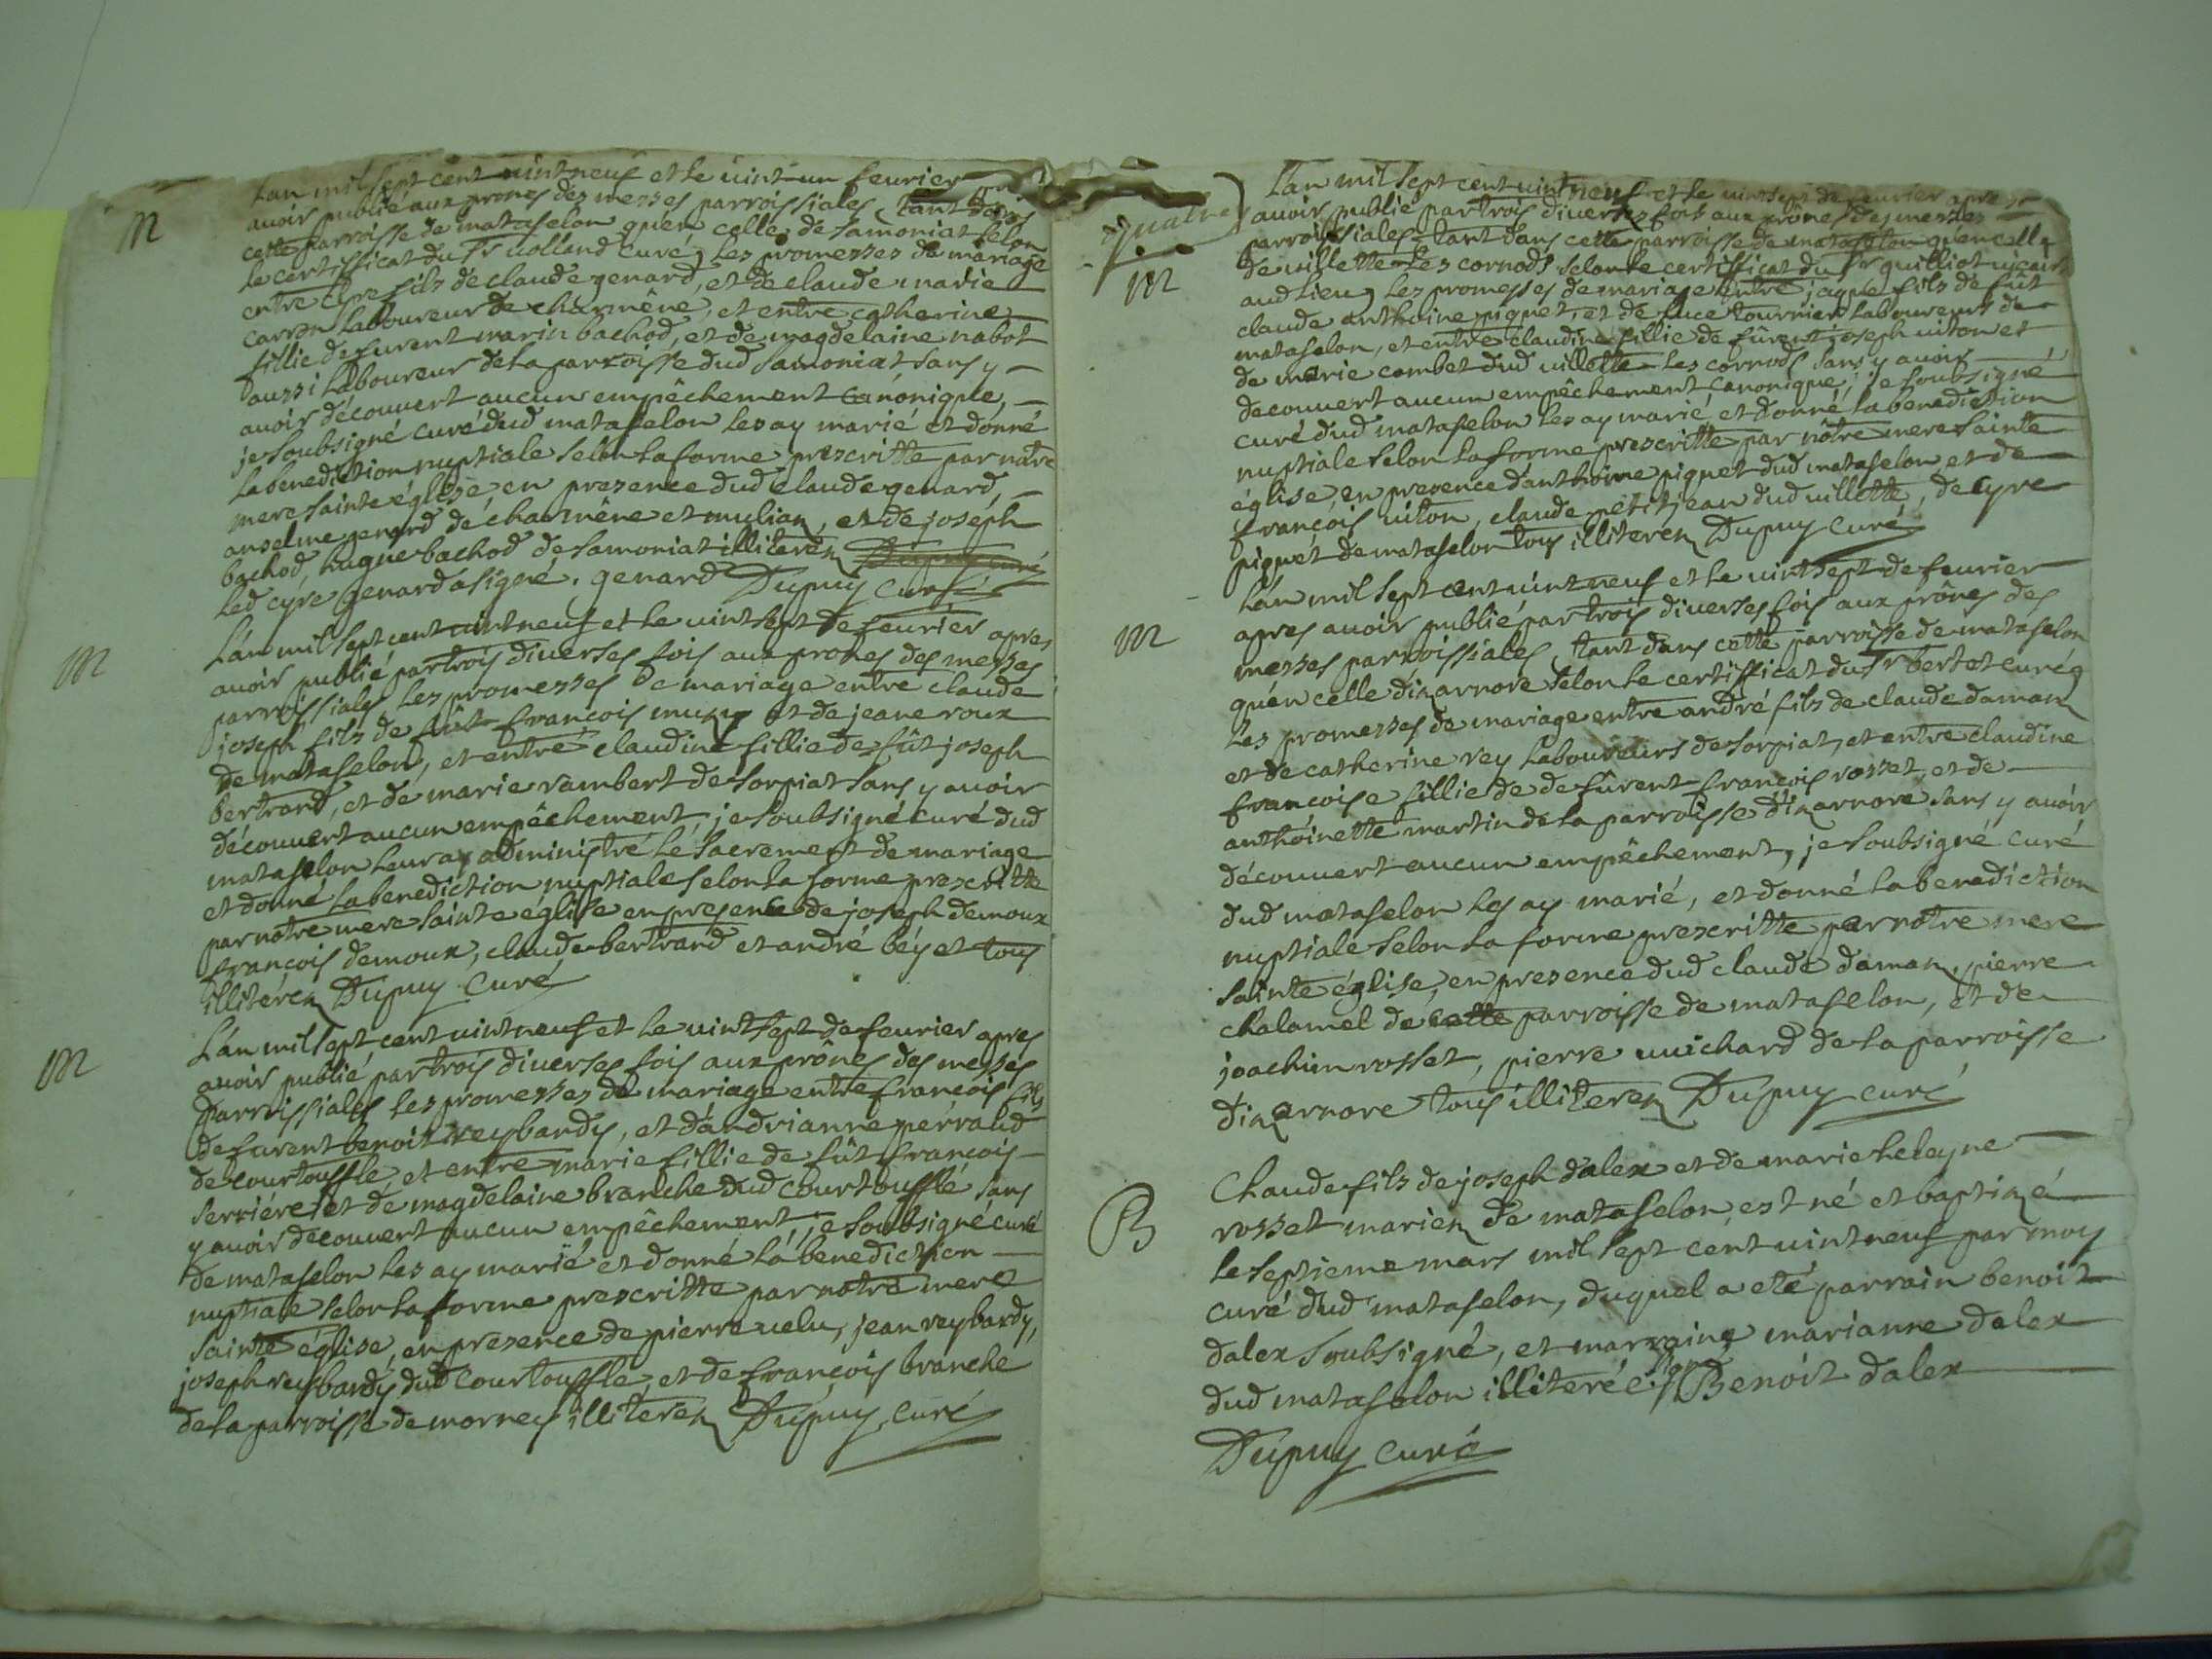 M
Lan mil sept cent vint neuf et le vint un fevrier
avoir publié aux prones des messes parroissiales, tant dans
cette parroisse de matafelon qu'en celle de samoniat selon
le certifficat du Sr volland curé, les promesses de mariage
entre cyre fils de claude genard, et de claude marie
carron laboureur de charmêne, et entre catherine
fillie de furent marin bachod, et de magdelaine nabot
aussi laboureur de la parroisse dud samoniat sans y
avoir découvert aucun empêchement canonique,
je soubsigné curé dud matafelon les ay marié et donné
la benediction nuptiale selon la forme prescritte par nôtre
mere sainte église, en presence dud claude genard,
anselme genard de charmêne et mulian, et de joseph
bachod, hugue bachod de samoniat illiterez Dupuy curé
led cyre genard a signé. genard Dupuy curé
M
Lán mil sept cent vint neuf et le vint sept de fevrier apres
avoir publié par trois diverses fois aux prones des messes
parroissiales les promesses de mariage entre claude
joseph fils de fût françois et de jeane roux
de matafelon, et entre claudine fillie de fût joseph
bertrand, et de marie rambert de sorpiat sans y avoir
découvert aucun empêchement, je soubsigné curé dud
matafelon leur ay administré le sacrement de mariage
et donné la benediction nuptiale selon la forme prescritte
par notre mere sainte église en presence de joseph demoux
françois demoux, claude bertrand et andré béy et tous
illitérez Dupuy curé
M
Lán mil sept cent vint neuf et le vint sept de fevrier apres
avoir publié par trois diverses fois aux prônes des messes
parroissiales les promesses de mariage entre françois fils
de furent benoit reybardy, et dándrianne perraud
de courtouffle, et entre marie fillie de fût françois
serriére et de magdelaine branche dud courtouffle sans
y avoir découvert aucun empêchement, je soubsigné curé
de matafelon les ay marié et donné la benediction
nuptiale selon la forme prescritte par notre mere
sainte église, en presence de pierre velu, jean reybardy,
joseph reybardy dud courtouffle, et de françois branche
de la parroisse de morney illiterez Dupuy curé
quatre
M
Lán mil sept cent vint neuf et le vint sept de fevrier apres
avoir publié par trois diverses fois aux prônes des messes
parroissiales tant dans cette parroisse de matafelon qu'en celle
de villette les cornods selon le certifficat du Sr guilliot vicaire
aud lieu, les promesses de mariage entre jaque fils de fût
claude anthoine piquet, et de luce tournier laboureurs de
matafelon, et entre claudine fillie de fûrent joseph viton et
de marie combet dud villette les cornods sans y avoir
decouvert aucun empêchement canonique, je soubsigné
curé dud matafelon les ay marié et donné la benediction
nuptiale selon la forme prescritte par nôtre mere sainte
église, en presence danthoine piquet dud matafelon et de
françois viton, claude petitjean dud villette, de cyre
piquet de matafelon tous illiterez Dupuy curé
M
Lán mil sept cent vint neuf et le vint sept de fevrier
apres avoir publié par trois diverses fois aux prônes des
messes parroissiales, tant dans cette parroisse de matafelon
qu'en celle dizarnore selon le certifficat du Sr bertet curé,
les promesses de mariage entre andré fils de claude daman
et de catherine rey laboureurs de sorpiat, et entre claudine
françoise fillie de de fûrent françois rosset et de
anthoinette martin de la parroisse dizarnore sans y avoir
découvert aucun empêchement, je soubsigné curé
dud matafelon les ay marié, et donné la benediction
nuptiale selon la forme prescritte par notre mere
sainte église, en presence dud claude daman, pierre
chalamel de cette parroisse de matafelon, et de
joachim rosset, pierre vuichard de la parroisse
dizarnore tous illiterez Dupuy curé
B
Claude fils de joseph dalex et de marie heleyne
rosset mariez de matafelon, est né et baptizé
le septieme mars mil sept cent vint neuf par moy
curé dud matafelon, duquel a eté parrain benoit
dalex soubsigné, et marraine marianne dalex
dud matafelon illiterée. Benoit dalex
Dupuy curé